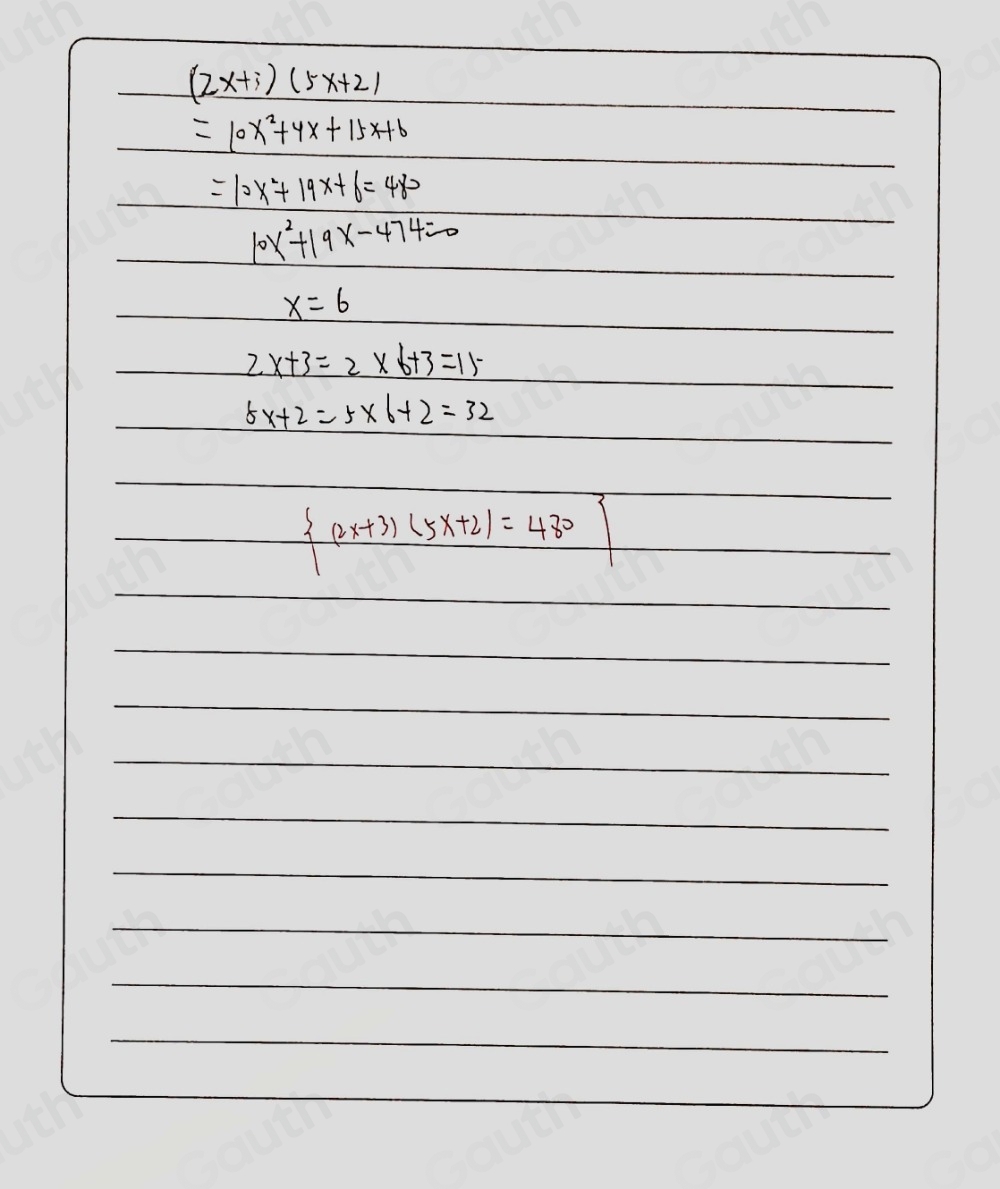 (2x+3)(5x+2)
= 10x²+4x+15x+6
= 10x²+19x+6=480
10x²+19x-474=0
x=6
2x+3=2×6+3=15
5x+2=5×6+2=32
{(2x+3)(5x+2)=480}